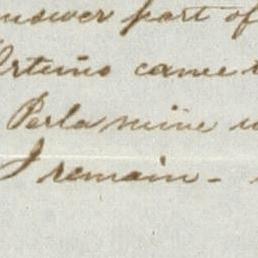 answer part of
Arteño came
Perla mine
I remain -